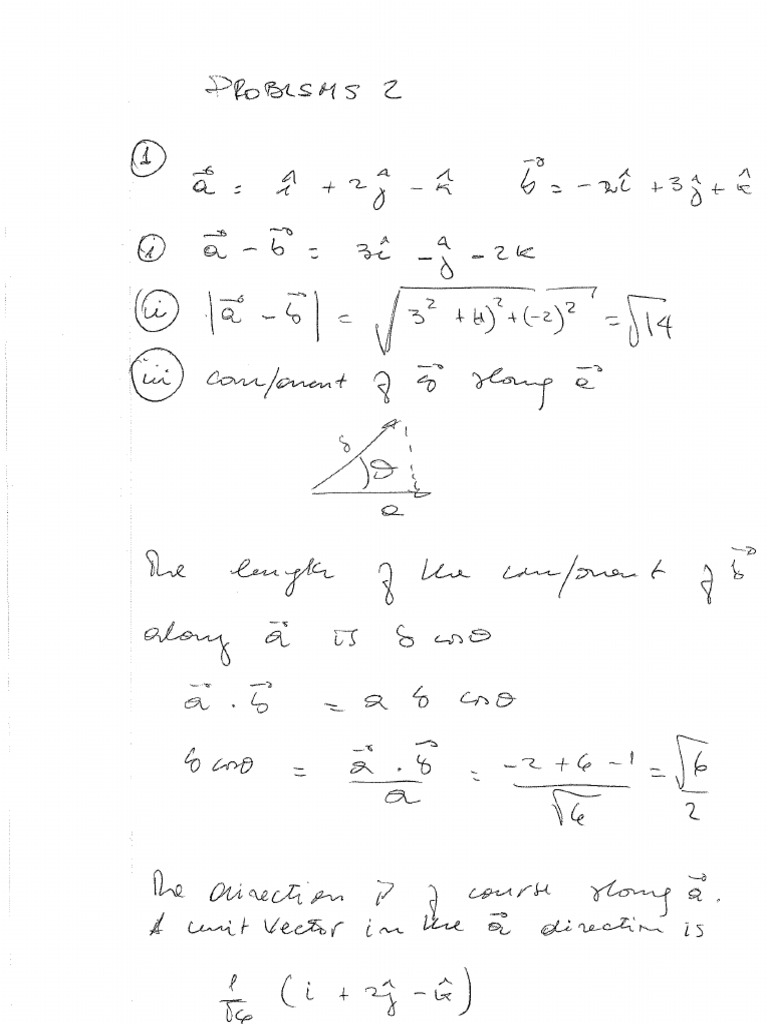 PROBLEMS 2
① a⃗ = î + 2ĵ - k̂ b⃗ = -2î + 3ĵ + k̂
(i) a⃗ - b⃗ = 3î - ĵ - 2k
(ii) |a⃗ - b⃗| = √(3² + (-1)² + (-2)²) = √14
(iii) component of b⃗ along a⃗
b
θ
a
The length of the component of b⃗
along a⃗ is b cosθ
a⃗ . b⃗ = a b cosθ
b cosθ = a⃗ . b⃗ / a = (-2 + 6 - 1) / √6 = √6 / 2
The direction is of course along a⃗.
A unit vector in the a⃗ direction is
1/√6 (i + 2ĵ - k̂)